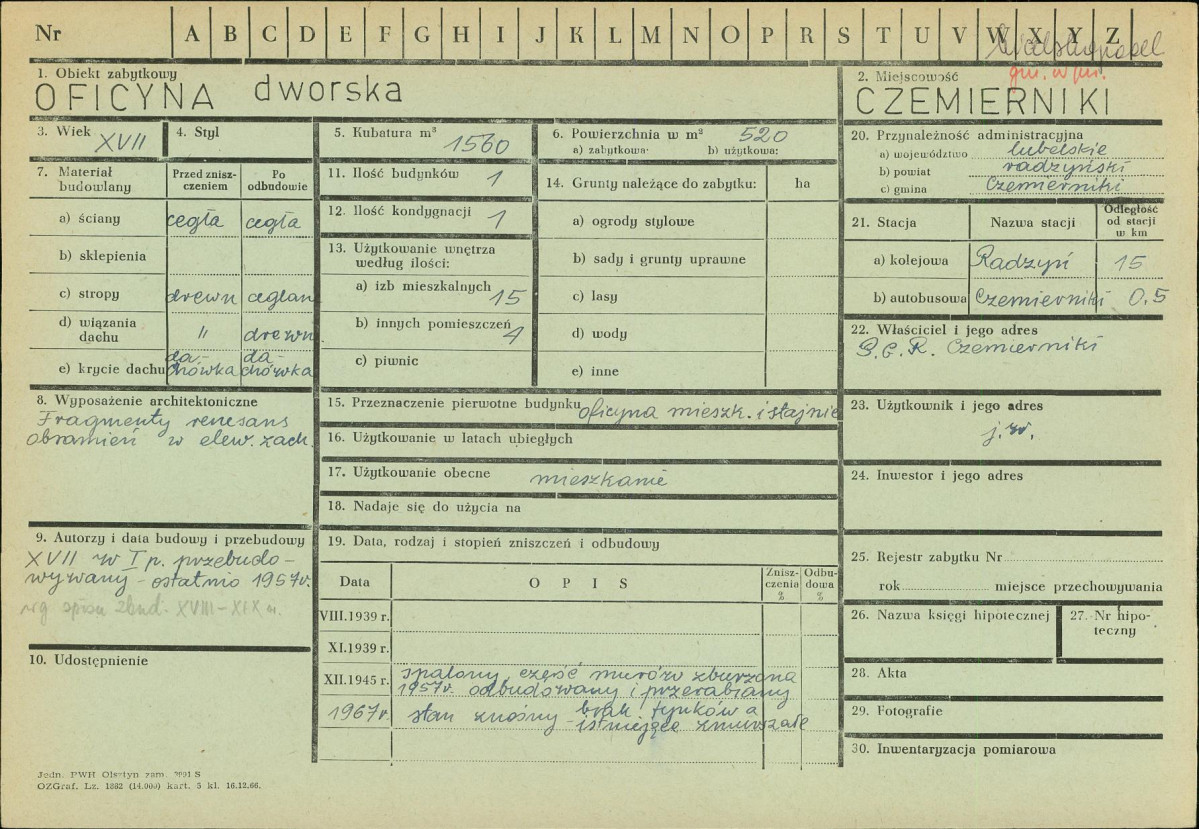 Nr A B C D E F G H I J K L M N O P R S T U V W X Y Z
gm. w m.
1. Obiekt zabytkowy
OFICYNA dworska
2. Miejscowość
CZEMIERNIKI
3. Wiek XVII
4. Styl
5. Kubatura m³ 1560
6. Powierzchnia w m² 520
a) zabytkowa: b) użytkowa:
7. Materiał budowlany
Przed zniszczeniem
Po odbudowie
a) ściany cegła cegła
b) sklepienia
c) stropy drewn ceglan
d) wiązania dachu " drewn
e) krycie dachu dachówka dachówka
8. Wyposażenie architektoniczne
Fragmenty renesans
obramień w elew. zach.
9. Autorzy i data budowy i przebudowy
XVII w I p. przebudo-
wywany - ostatnio 1957r.
wg spisu zbud. XVIII-XIX w.
10. Udostępnienie
11. Ilość budynków 1
12. Ilość kondygnacji 1
13. Użytkowanie wnętrza
według ilości:
a) izb mieszkalnych 15
b) innych pomieszczeń 4
c) piwnic
14. Grunty należące do zabytku: ha
a) ogrody stylowe
b) sady i grunty uprawne
c) lasy
d) wody
e) inne
15. Przeznaczenie pierwotne budynku oficyna mieszk. i stajnie
16. Użytkowanie w latach ubiegłych
17. Użytkowanie obecne mieszkanie
18. Nadaje się do użycia na
19. Data, rodzaj i stopień zniszczeń i odbudowy
Data O P I S Zniszczenia % Odbudowa %
VIII.1939 r.
XI.1939 r.
XII.1945 r. spalony, część murów zburzona
1957r. odbudowany i przerabiany
1967r. stan znośny brak tynków a
istniejące zmurszałe
20. Przynależność administracyjna
a) województwo lubelskie
b) powiat radzyński
c) gmina Czemierniki
21. Stacja Nazwa stacji Odległość od stacji w km
a) kolejowa Radzyń 15
b) autobusowa Czemierniki 0,5
22. Właściciel i jego adres
P.G.R. Czemierniki
23. Użytkownik i jego adres
j.w.
24. Inwestor i jego adres
25. Rejestr zabytku Nr
rok miejsce przechowywania
26. Nazwa księgi hipotecznej
27. Nr hipoteczny
28. Akta
29. Fotografie
30. Inwentaryzacja pomiarowa
Jedn. PWH Olsztyn zam.
OZGraf. Lz. 1882 (14.000) kart. 5 kl. 16.12.66.